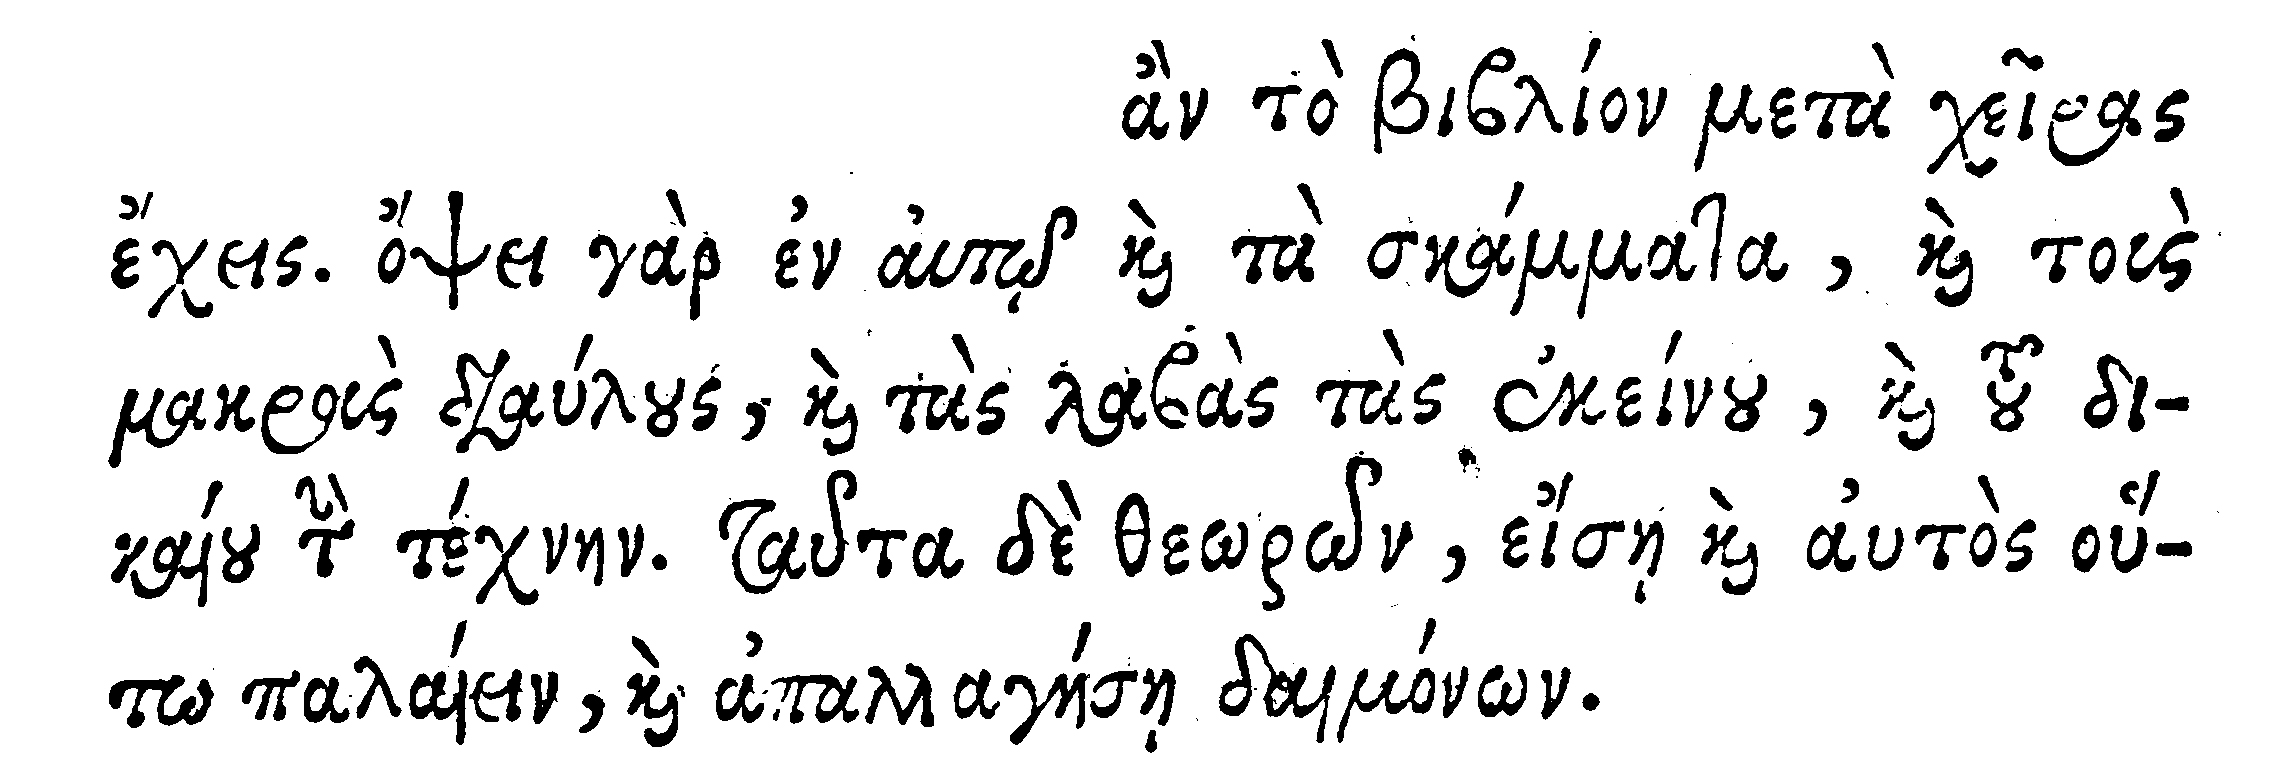 ἂν τὸ βιβλίον μετὰ χεῖρας
ἔχεις. ὄψει γὰρ ἐν ἀυτῷ καὶ τὰ σκάμματα, καὶ τοὺς
μακροὺς διαύλους, καὶ τὰς λαβὰς τὰς ἐκείνου, καὶ τοῦ δι-
καίου τὴν τέχνην. Ταῦτα δὲ θεωρῶν, εἴσῃ καὶ ἀυτὸς οὕ-
τω παλαίειν, καὶ ἀπαλλαγήσῃ δαιμόνων.